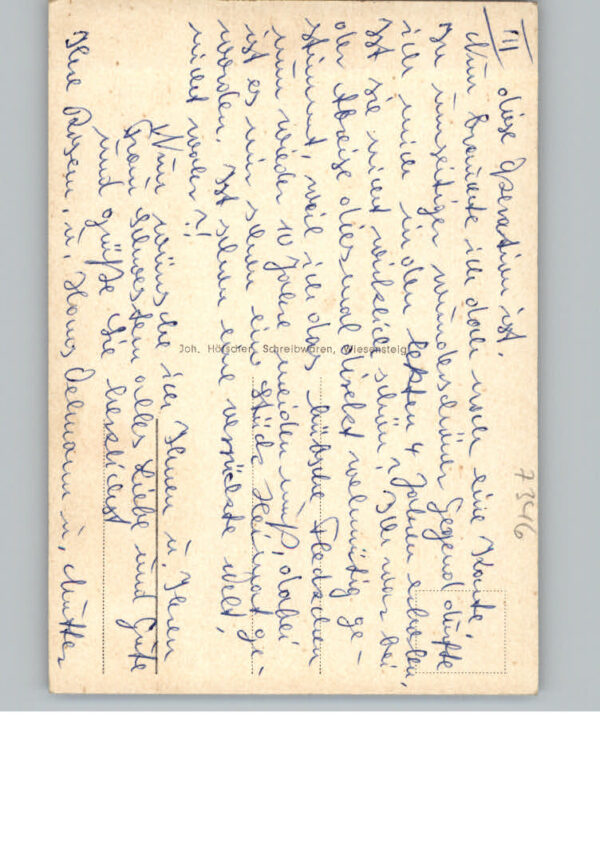 III diese Operation ist.
Nun brauchte ich doch noch eine Karte,
In umseitiger wunderschöner Gegend durfte
ich mich in den letzten 4 Jahren erholen,
Ist sie nicht wirklich schön? Ich war bei
der Abreise diesmal direkt wehmütig ge-
stimmt, weil ich das hübsche Fleckchen
nun wieder 10 Jahre meiden muß, dabei
ist es mir schon ein Stück Heimat ge-
worden. Ist schon eine verrückte Welt,
nicht wahr?!
Nun wünsche ich Ihnen u. Ihren
Frau Schwestern alles Liebe und Gute
und grüße Sie herzlichst
Ihre Rosem. u. Hans u. Mutter
Joh. Hörscher, Schreibwaren, Wiesensteig
7346